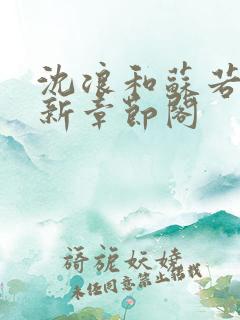 沈浪和蘇若
新章節閣
旖旎妖嬈
未经同意禁止搭载